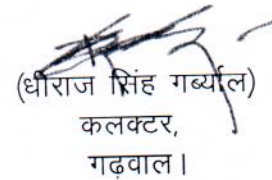 (धीराज सिंह गर्ब्याल)
कलक्टर,
गढ़वाल।